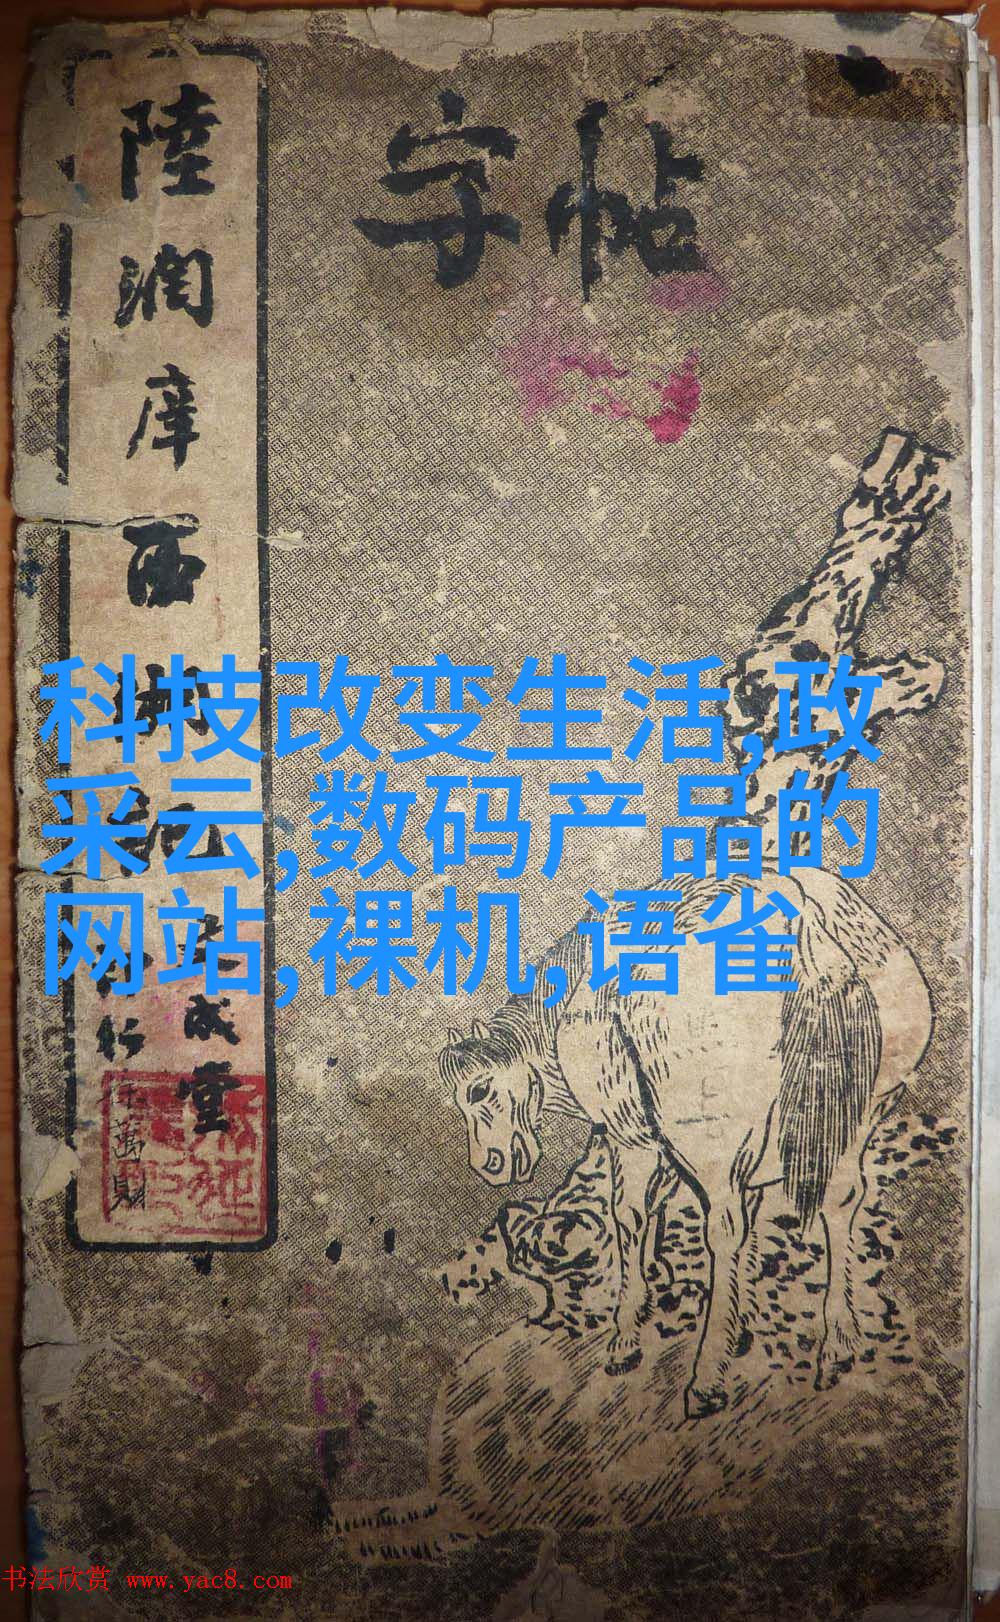 字帖
陸潤庠西湖
成堂
科技改变生活,政
采云,数码产品的
网站,裸机,语雀
徐萬財
书法欣赏 www.yac8.com